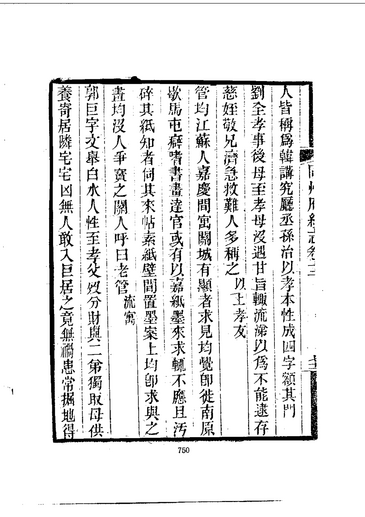 同州府續志卷十三
人皆稱爲韓講究廳丞孫治以孝本性成四字額其門
劉全孝事後母至孝母沒遇甘旨輒流涕以爲不能遠存
慈姪敬兄濟急救難人多稱之 以上孝友
管均江蘇人嘉慶間寓關城有顯者求見均覺卽徙南原
歇馬屯癖嗜書畫達官或有以嘉紙墨來求輒不應且汚
碎其紙知者伺其來帖素紙壁間置墨案上均卽求與之
畫均沒人爭寶之關人呼曰老管 流寓
郭巨字文舉白水人性至孝父歿分財與二弟獨取母供
養寄居隣宅宅凶無人敢入巨居之竟無禍患常掘地得
750